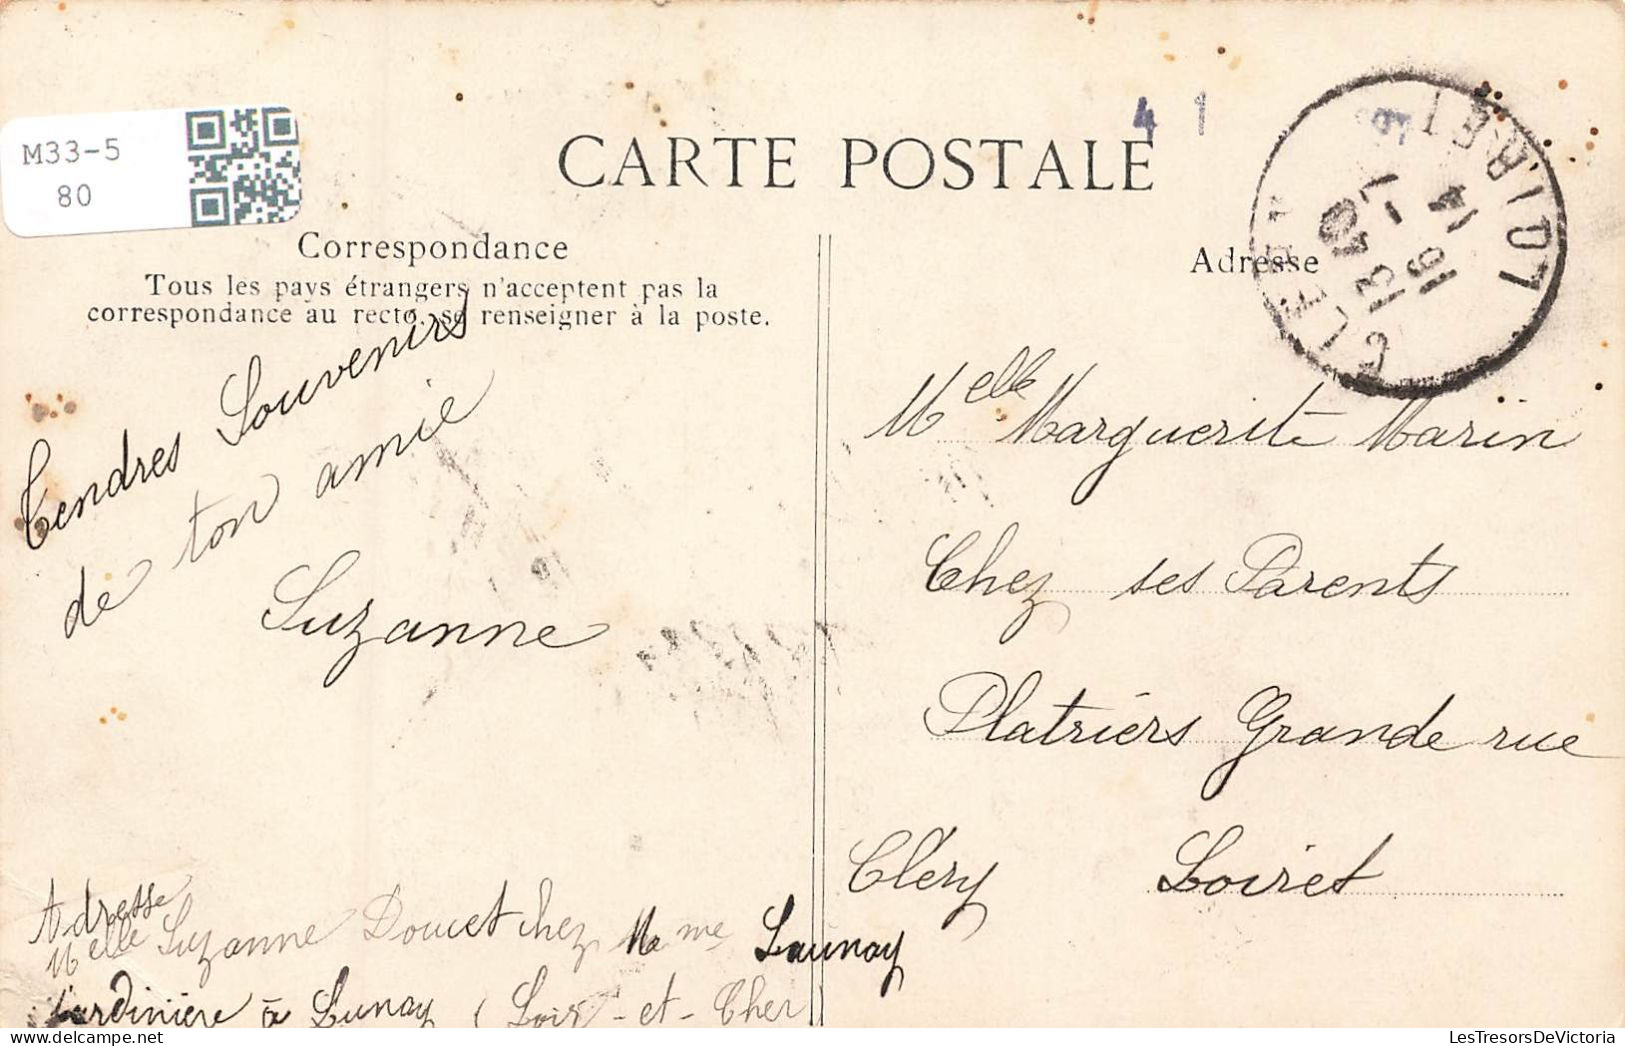 M33-5
80
CARTE POSTALE
4 1
LOIRET
CLERY
14
Correspondance
Tous les pays étrangers n'acceptent pas la
correspondance au recto, se renseigner à la poste.
Adresse
Tendres Souvenirs
de ton amie
Suzanne
Melle Marguerite Marin
Chez ses Parents
Platriers Grande rue
Cléry Loiret
Adresse
Melle Suzanne Doucet chez Mme Launay
Jardinière à Lunay (Loir-et-Cher)
LesTresorsDeVictoria